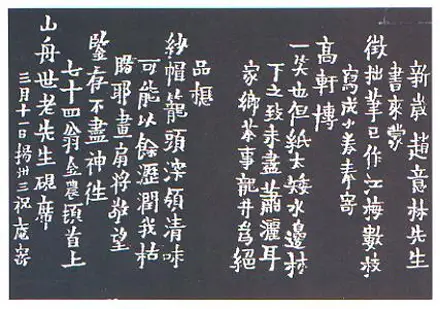 新歲趙意林先生
書來蒙
徵拙筆已作江梅數枝
寫成奉寄
高軒博
一笑也但紙太矮水邊林
下之致未盡蕭灑耳
家鄉茶事龍井為絕
品想
紗帽籠頭深領清味
可能以餘瀝潤我枯
腸耶畫扇將敬望
鑒存不盡神往
七十四翁金農頓首上
山舟世老先生硯席
三月十一日揚州三祝庵寄